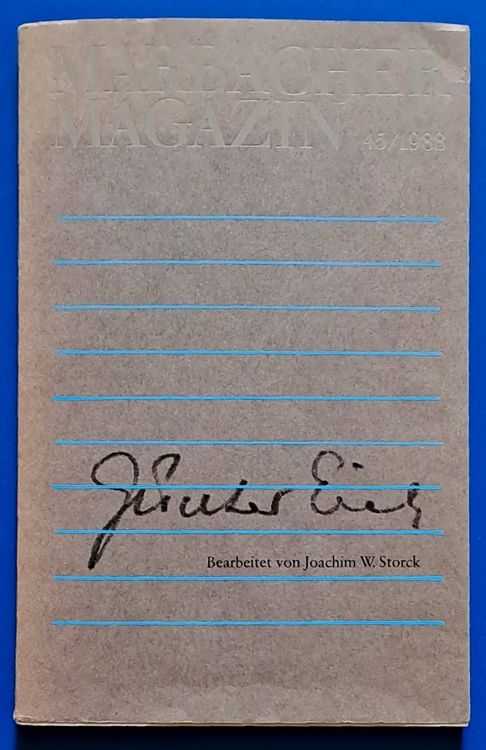 MARBACHER
MAGAZIN 45/1988
Günter Eich
Bearbeitet von Joachim W. Storck